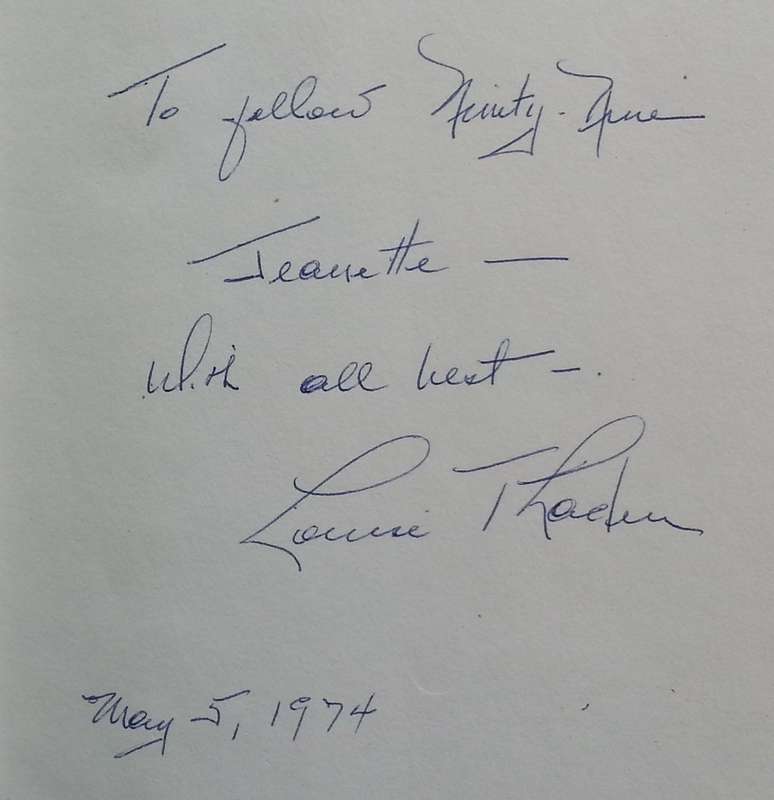 To fellow Ninety-Nine
Jeanette —
With all best —.
Louise Thaden
May 5, 1974